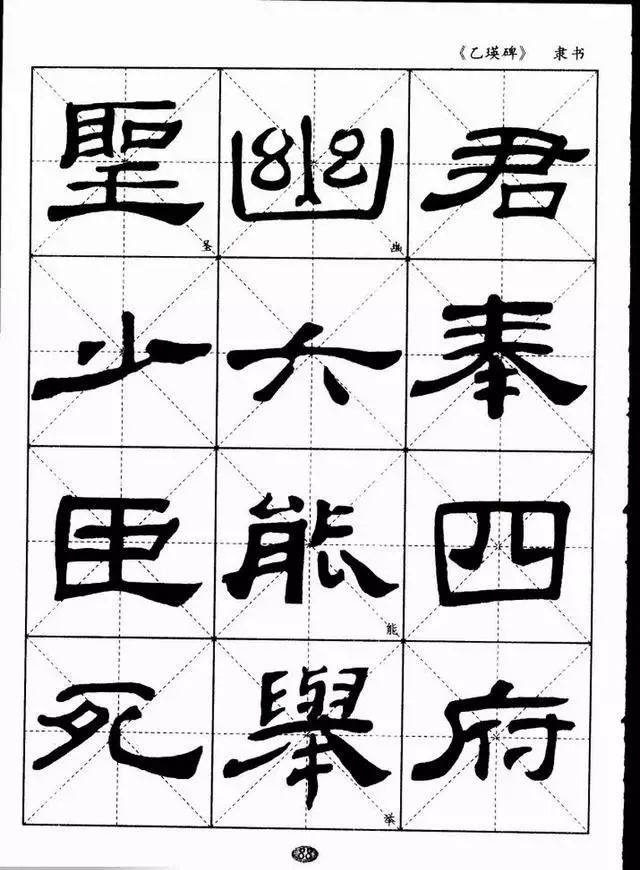 《乙瑛碑》 隶书
君
奉
四
府
幽 幽
六
能 能
舉 举
聖 圣
少
臣
死
88